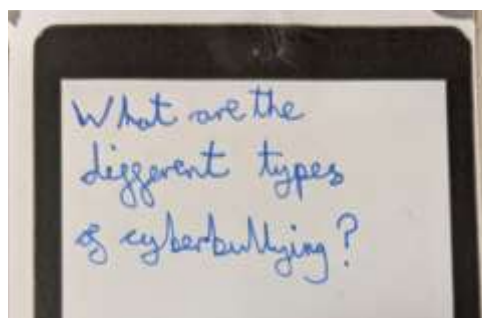 What are the
different types
of cyberbullying?